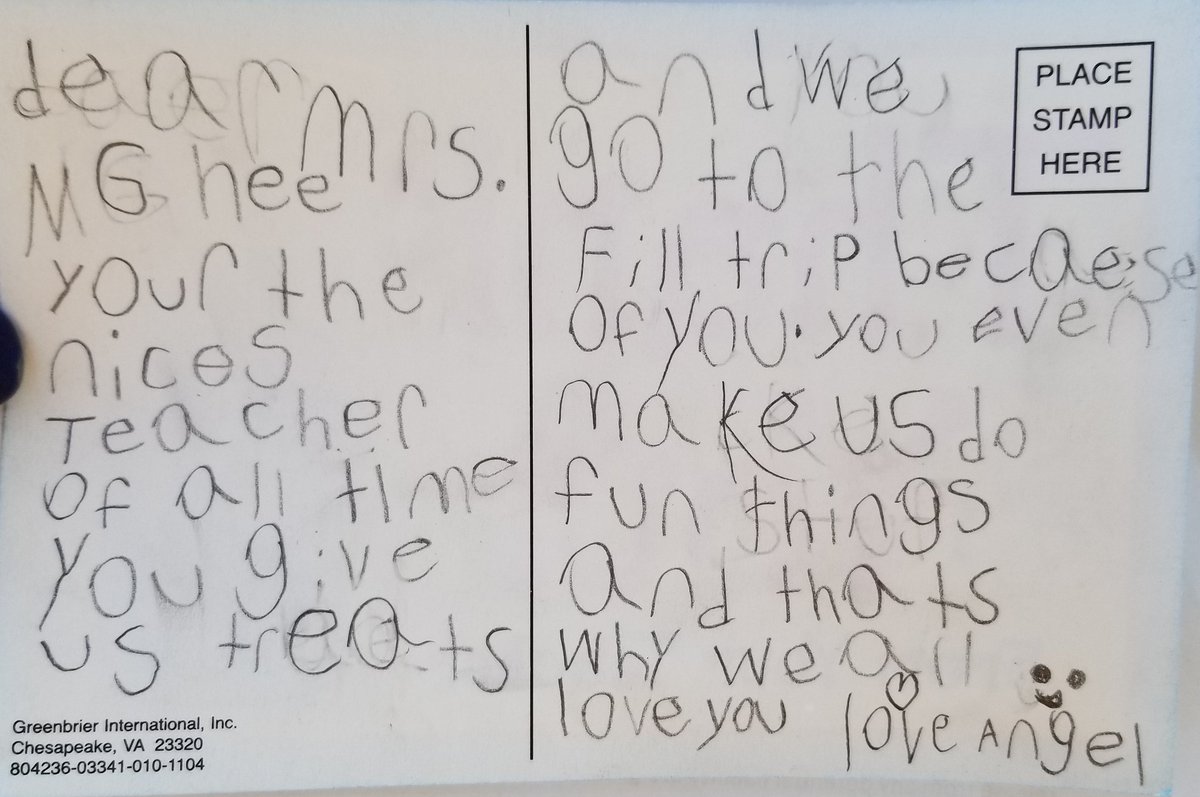 dear Mrs.
MG hee
your the
nices
Teacher
Of all time
you give
us treats
Greenbrier International, Inc.
Chesapeake, VA 23320
804236-03341-010-1104
and we
go to the
Fill trip becaese
Of you. you even
make us do
fun things
and thats
why we all
love you love Angel
PLACE
STAMP
HERE